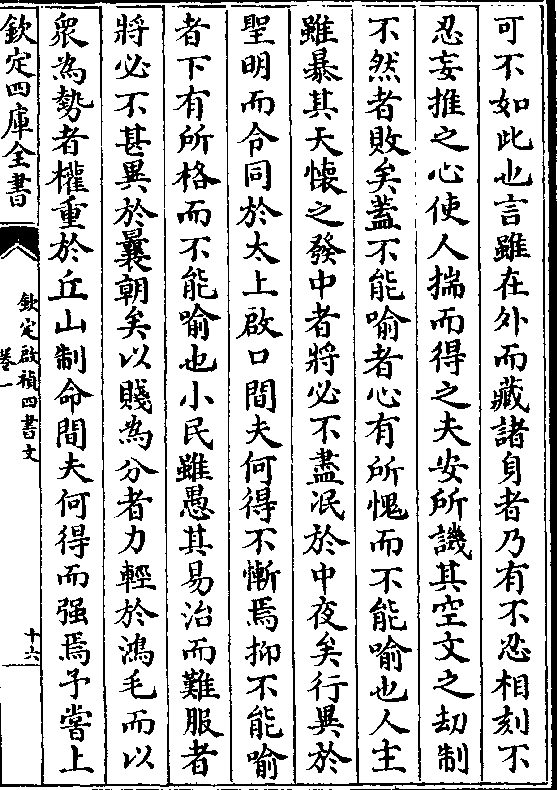 可不如此也言雖在外而藏諸身者乃有不忍相刻不
忍妄推之心使人揣而得之夫安所譏其空文之劫制
不然者敗矣蓋不能喻者心有所愧而不能喻也人主
雖暴其天懐之發中者將必不盡泯於中夜矣行異於
聖明而令同於太上啟口間夫何得不慚焉抑不能喻
者下有所格而不能喻也小民雖愚其易治而難服者
將必不甚異於曩朝矣以賤為分者力輕於鴻毛而以
衆為勢者權重於丘山制命間夫何得而强焉予嘗上
欽定四庫全書
欽定啟禎四書文
卷一
十六